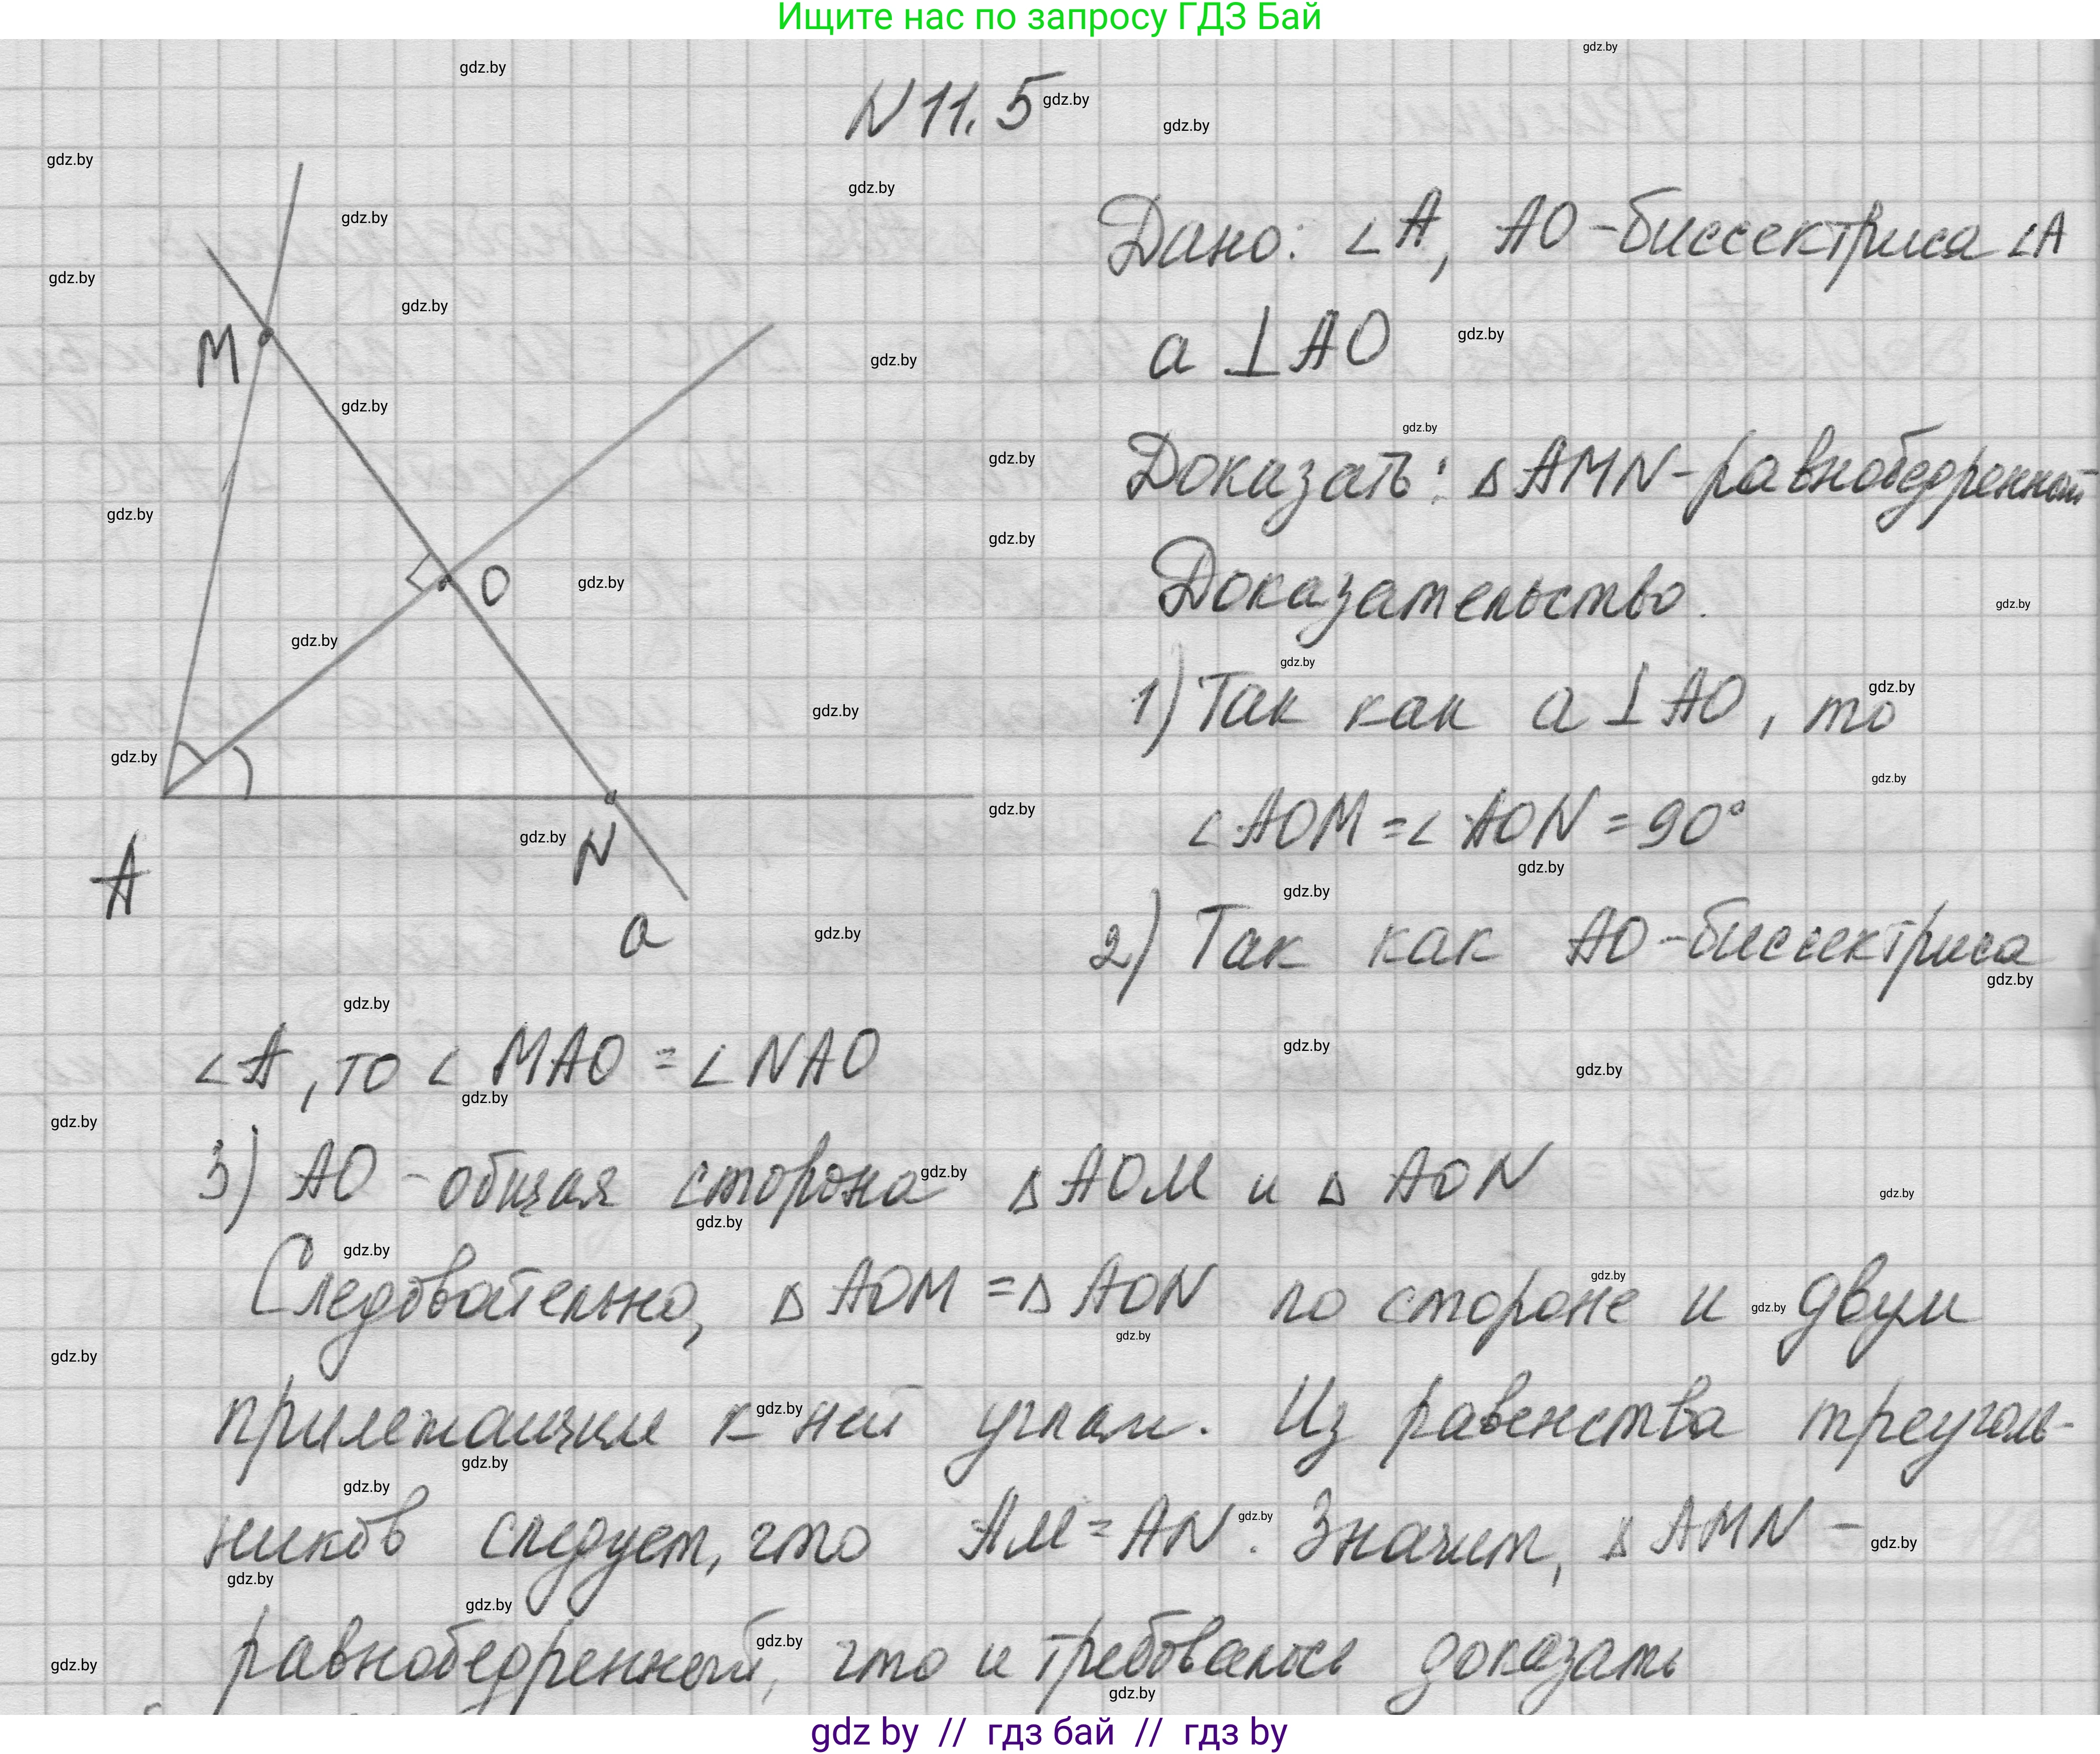 Ищите нас по запросу ГДЗ Бай
N 11.5
Дано: ∠A, AO - биссектриса ∠A
a ⊥ AO
Доказать: △ AMN - равнобедренный
Доказательство.
1) Так как a ⊥ AO, то
∠ AOM = ∠ AON = 90°
2) Так как AO - биссектриса
∠A, то ∠ MAO = ∠ NAO
3) AO - общая сторона △ AOM и △ AON
Следовательно, △ AOM = △ AON по стороне и двум
прилежащим к ней углам. Из равенства треуголь-
ников следует, что AM = AN. Значит, △ AMN -
равнобедренный, что и требовалось доказать
M
O
A
N
a
gdz.by
gdz by // гдз бай // гдз by